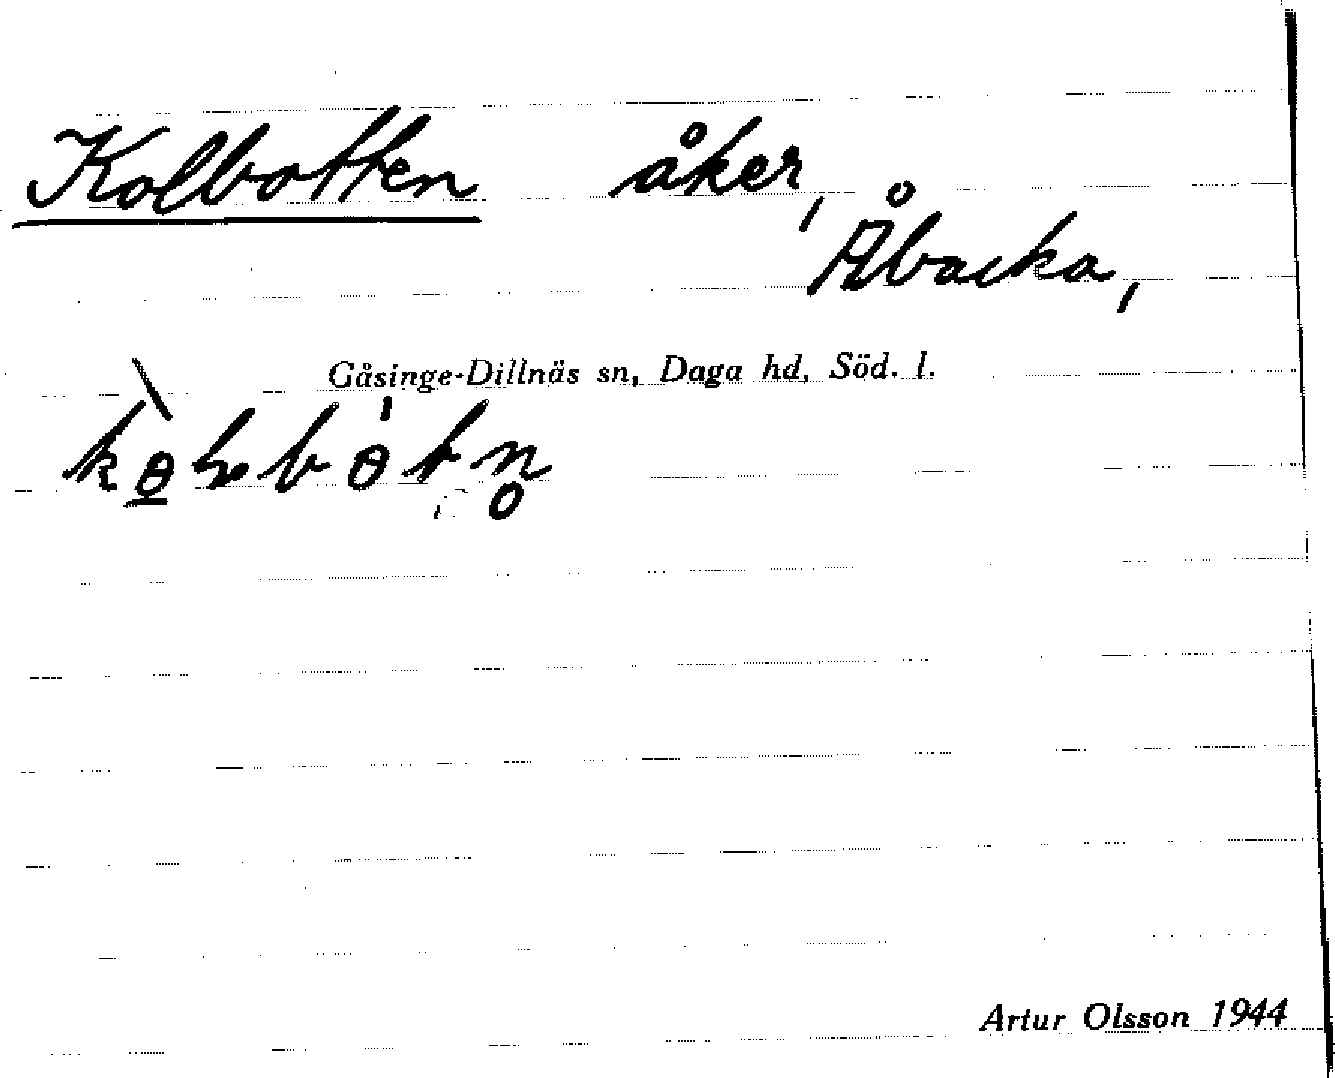 Kolbotten åker,
Åbacka,
Gåsinge-Dillnäs sn, Daga hd, Söd. l.
Artur Olsson 1944